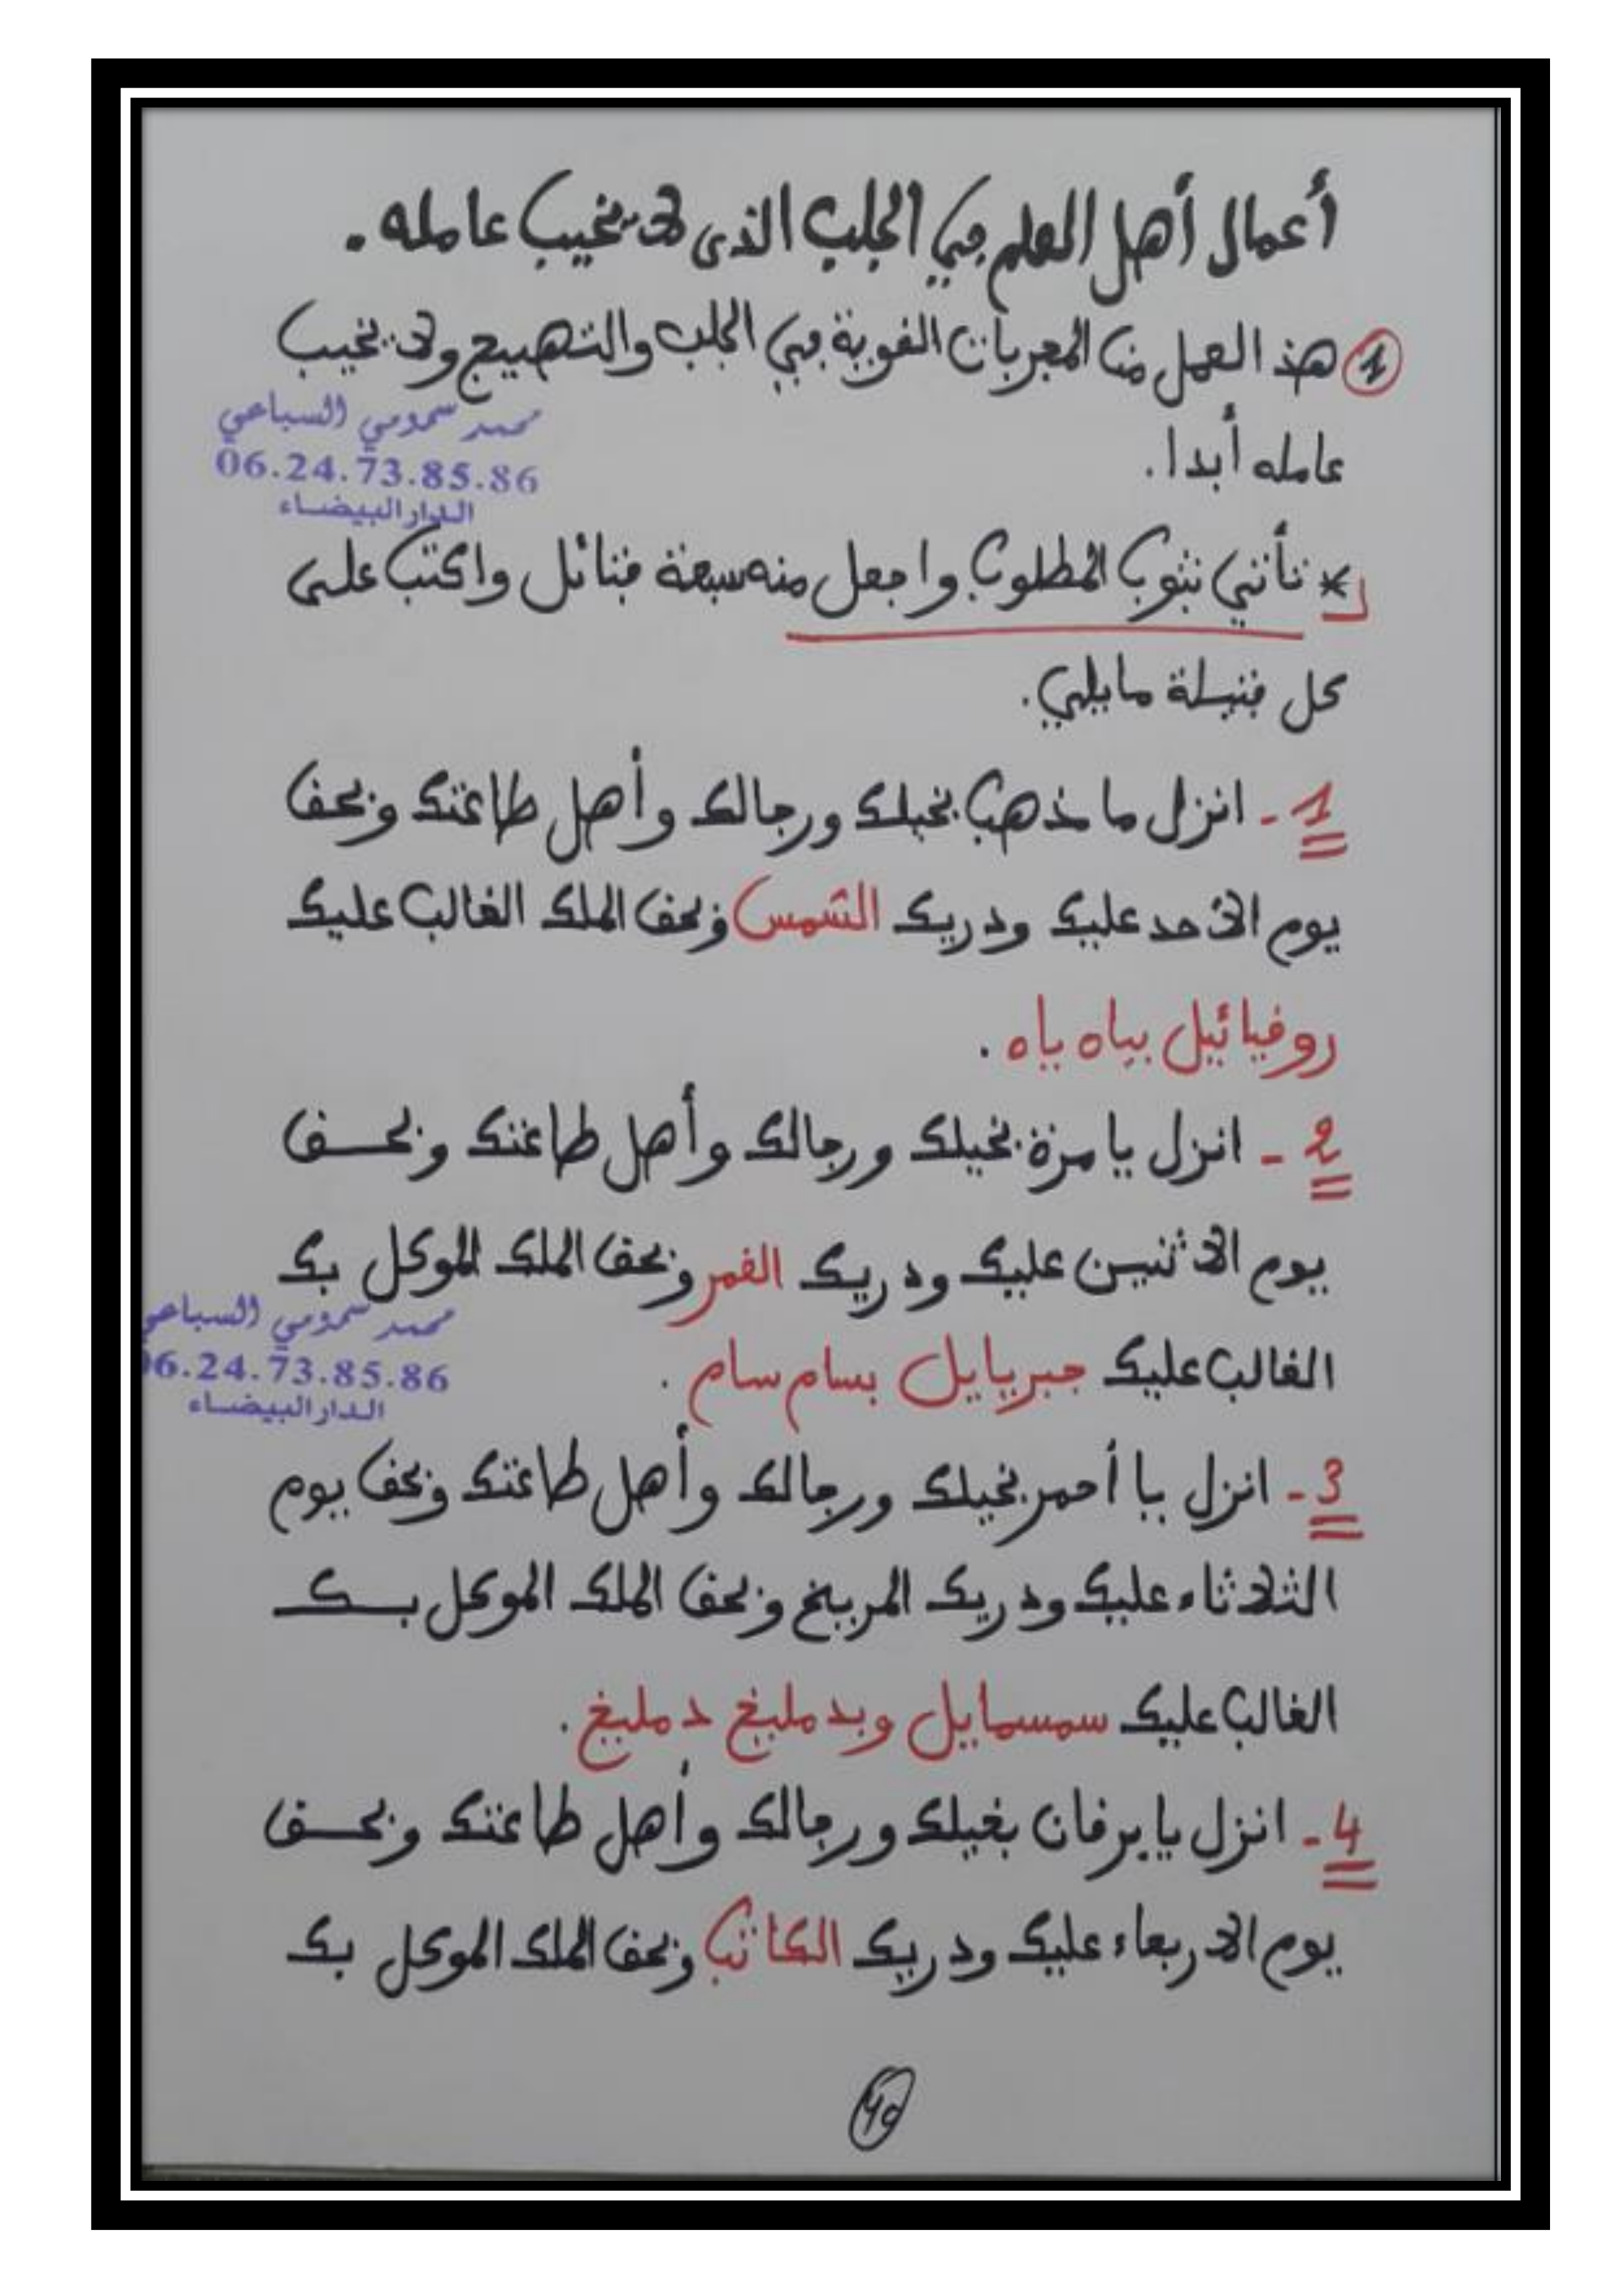 أعمال أهل العلم في الجلب الذى لا يخيب عامله.
1 هذ العمل من المجربات القوية في الجلب والتهييج ولا يخيب
محمد سمومي السباعي
06.24.73.85.86
الدار البيضاء
عامله أبدا.
* تأتي بثوب المطلوب واجعل منه سبعة فتائل واكتب على
كل فتيلة مايلي.
1 - انزل ما مذهب بخيلك ورجالك وأهل طاعتك وبحق
يوم الاحد عليك ودريك الشمس وبحق الملك الغالب عليك
روفيائيل بياه ياه.
2 - انزل يا مرة بخيلك ورجالك وأهل طاعتك وبحـــق
يوم الاثنين عليك ودريك القمر وبحق الملك الموكل بك
محمد سمومي السباعي
06.24.73.85.86
الدار البيضاء
الغالب عليك جبريايل بسام سام.
3 - انزل يا أحمر بخيلك ورجالك وأهل طاعتك وبحق يوم
الثلاثاء عليك ودريك المريخ وبحق الملك الموكل بـــك
الغالب عليك سمسمايل وبدمليخ دمليخ.
4 - انزل يا برقان بخيلك ورجالك وأهل طاعتك وبحـــق
يوم الاربعاء عليك ودريك الكاتب وبحق الملك الموكل بك